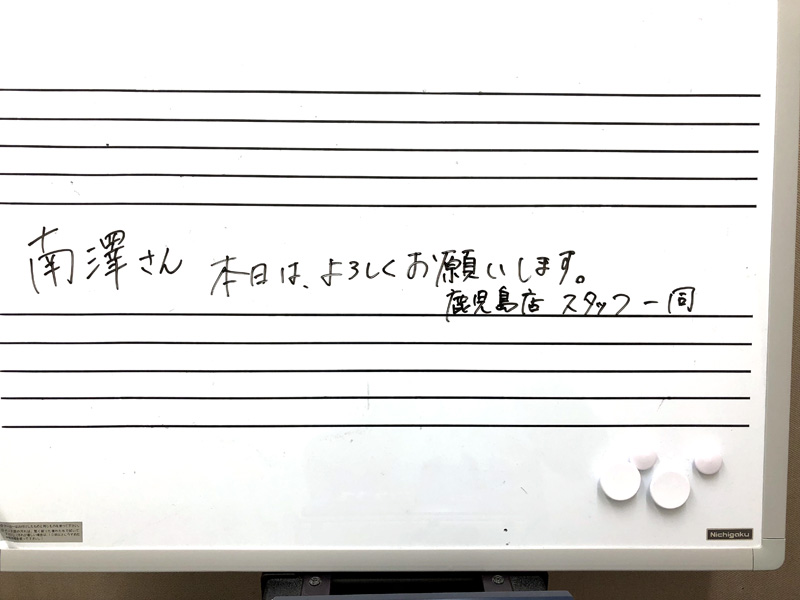 南澤さん 本日は、よろしくお願いします。
鹿児島店 スタッフ一同
Nichigaku